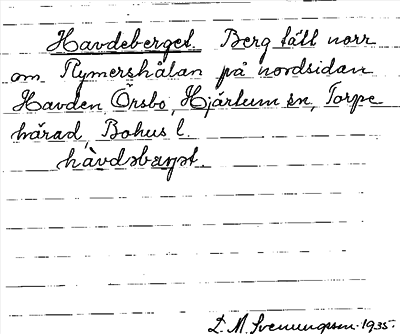 Havdeberget. Berg tätt norr
om Rymershålan på nordsidan
Havden, Örsbo, Hjärtum sn, Torpe
härad, Bohus l.
hàvdsbarjst.
D. M. Svenungsson. 1935.